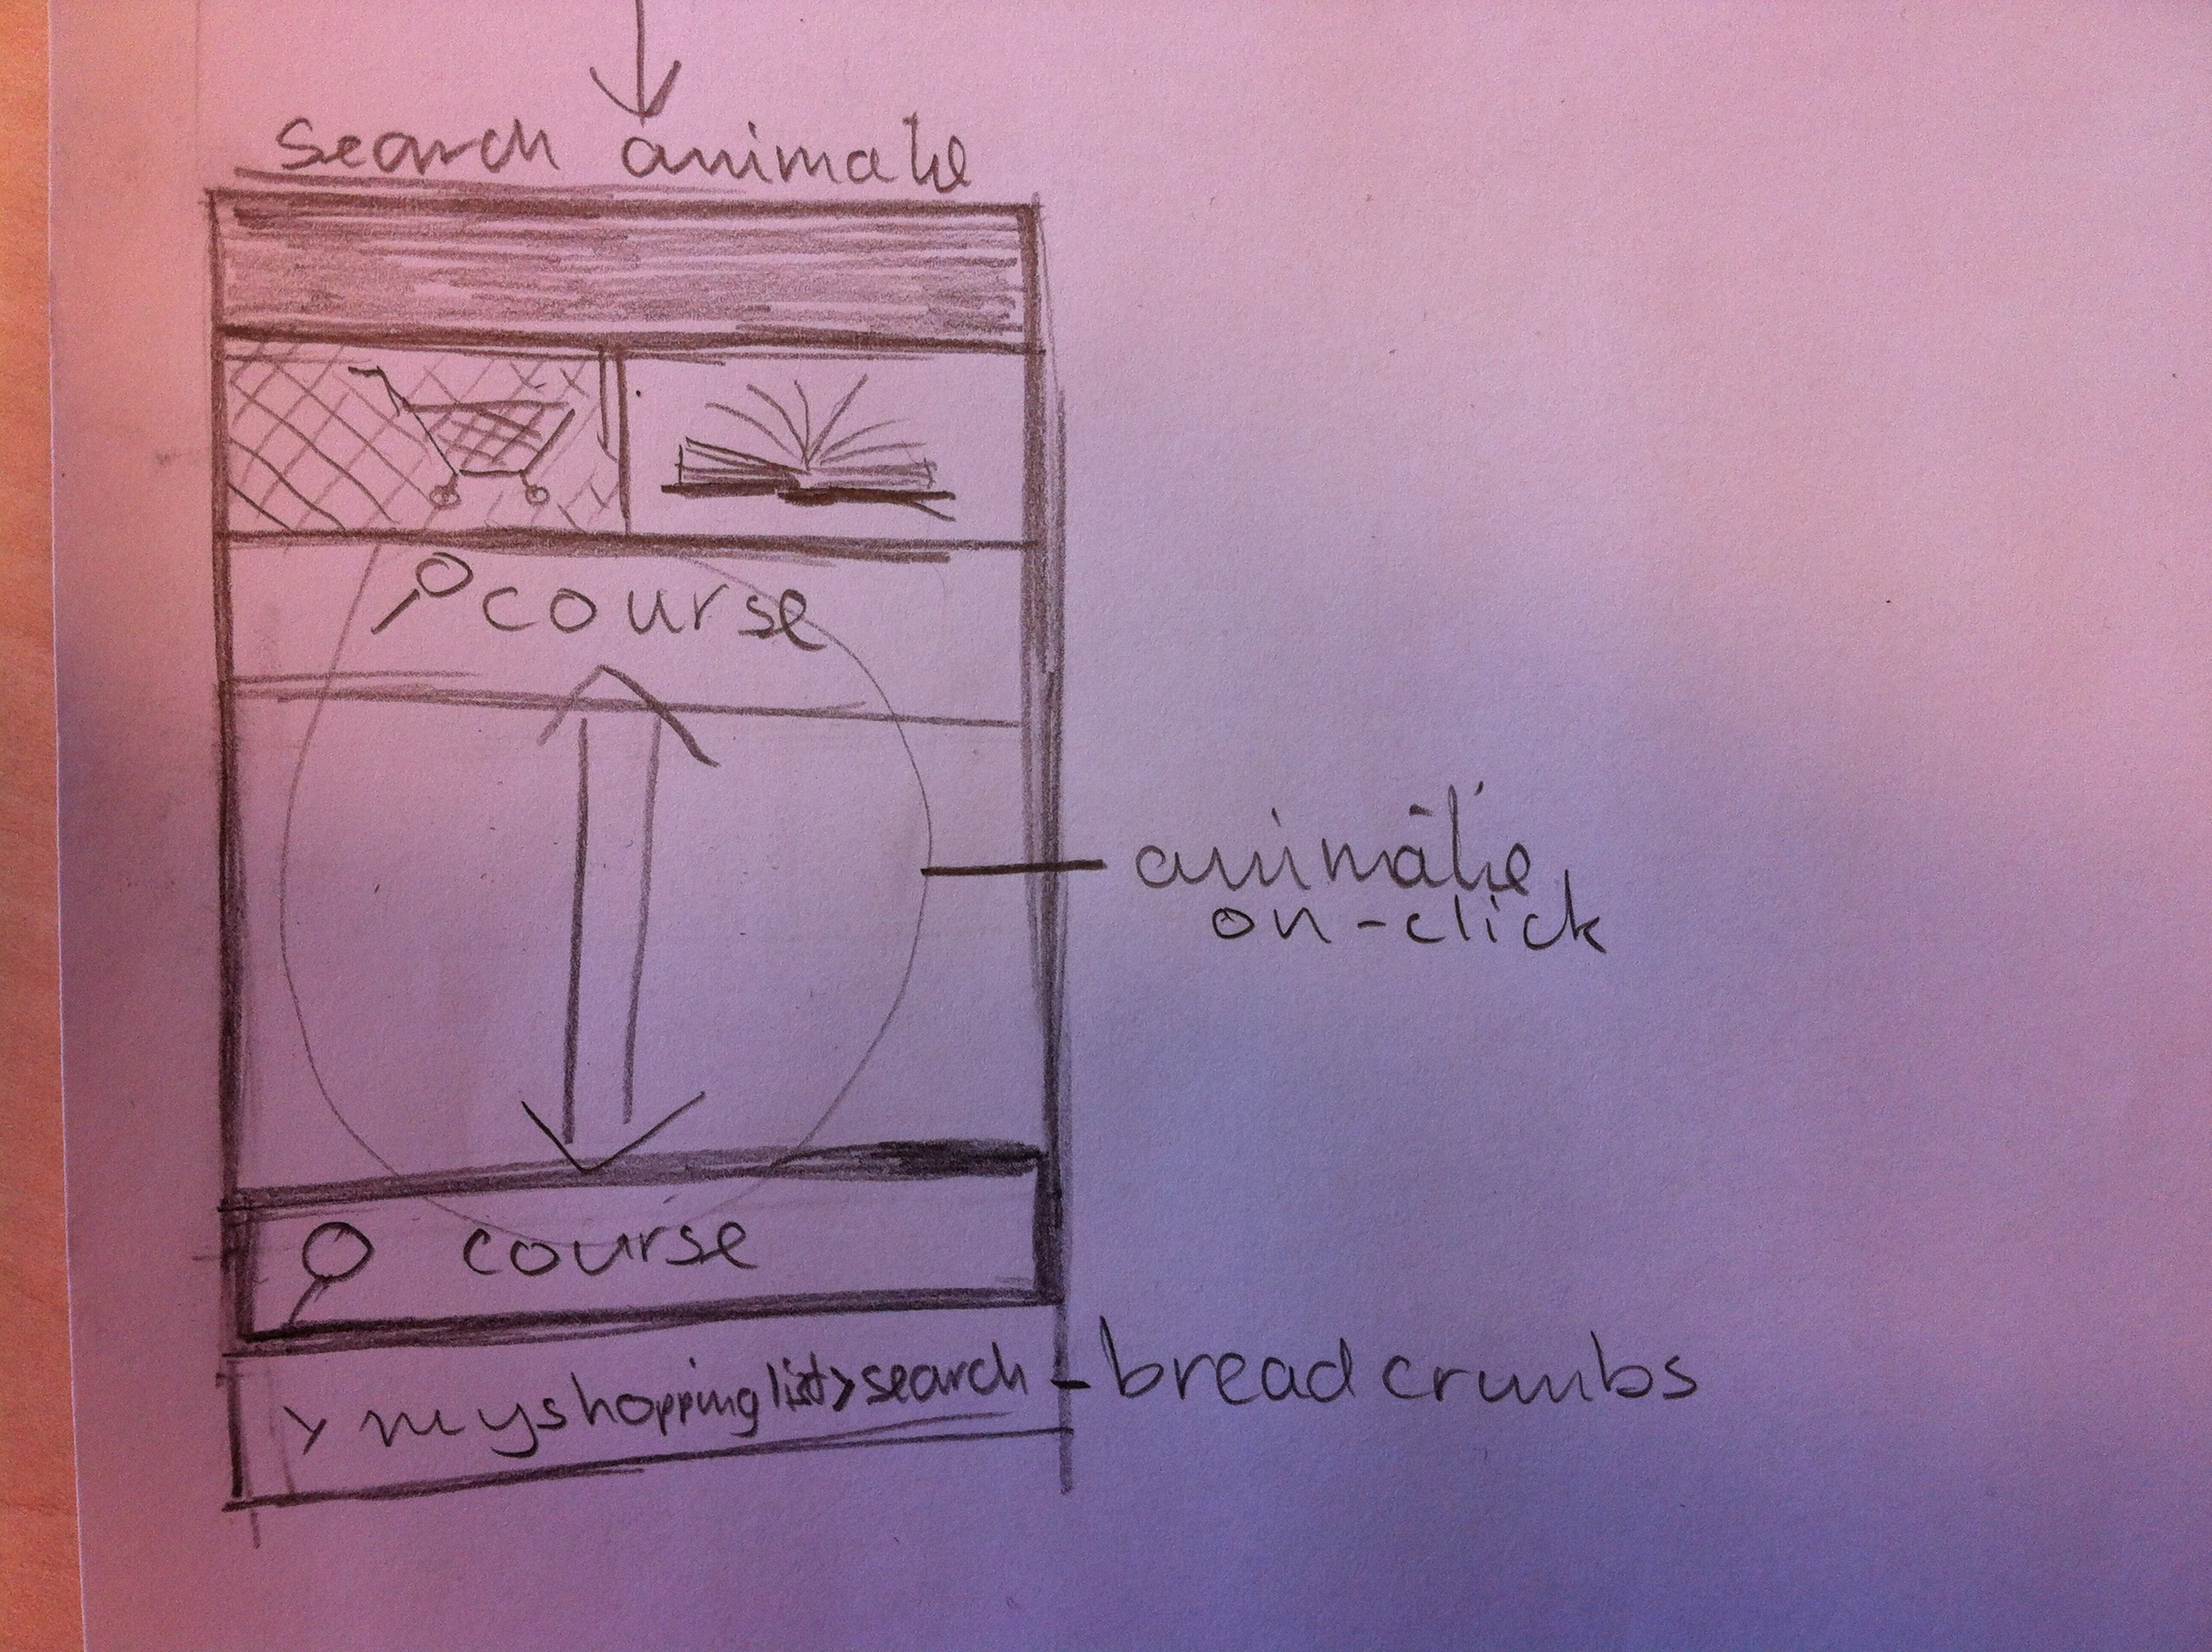 search animatie
course
animatie
on-click
course
> myshoppinglist>search
breadcrumbs